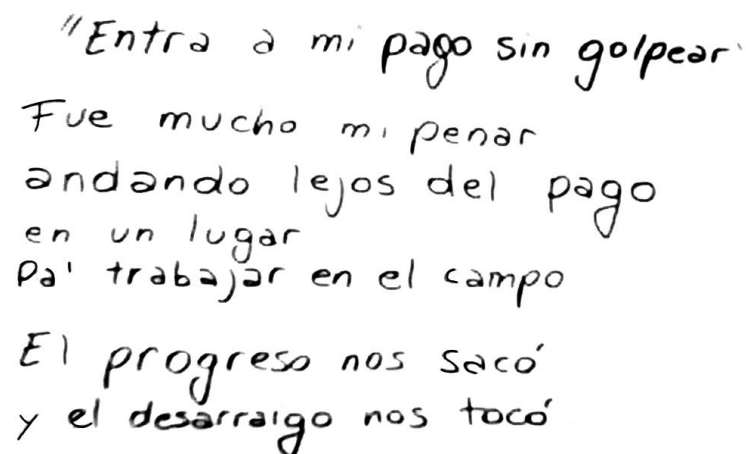 "Entra a mi pago sin golpear
Fue mucho mi penar
andando lejos del pago
en un lugar
Pa' trabajar en el campo
El progreso nos sacó
y el desarraigo nos tocó